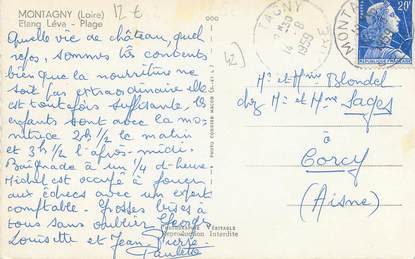 MONTAGNY (Loire)
Etang Léva - Plage
12 t
42
Quelle vie de château, quel
repos, sommes très contents
bien que la nourriture ne
soit pas extraordinaire elle
est toutefois suffisante, les
enfants sont avec la mo-
nitrice 2h 1/2 le matin
et 3h 1/2 l'après-midi.
Baignade à un 1/4 d'heure
Michel est occupé à jouer
aux échecs avec un expert
comptable. Grosses bises à
tous sans oublier George
Louisette et Jean-Pierre
Paulette
PHOTO COMBIER MACON
PHOTOGRAPHIE VÉRITABLE
Reproduction Interdite
TAGNY
14 -8
1959
LOIRE
MONTA
20F
POSTES
REPUBLIQUE FRANÇAISE
Mr et Mme Blondel
chez Mr et Mme Sages
à
Corcy
(Aisne)